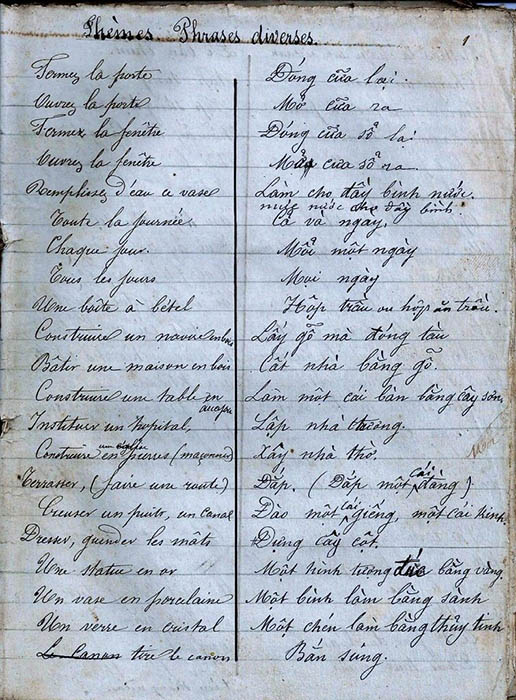 Thèmes. Phrases diverses. 1
Fermez la porte Đóng cữa lại.
Ouvrez la porte Mở cữa ra
Fermez la fenêtre Đóng cữa sổ lại
Ouvrez la fenêtre Mở cữa sổ ra
Remplissez d'eau ce vase Làm cho đầy bình nước.
múc nước cho đầy bình.
Toute la journée Cả và ngày.
Chaque jour. Mỗi một ngày
Tous les jours Mọi ngày
Une boîte à bétel Hộp trầu ou hộp ăn trầu.
Construire un navire en bois Lấy gỗ mà đóng tàu
Bâtir une maison en bois Cất nhà bằng gỗ.
Construire une table en acajou Làm một cái bàn bằng cây sơn
Instituer un hôpital, Lập nhà thương.
Construire en pierres (maçonner) Xây nhà thờ.
Terrasser, (faire une route) Đắp. (Đắp một cái đàng)
Creuser un puits, un canal Đào một cái giếng, một cái kinh.
Dresser, guinder les mâts Dựng cây cột.
Une statue en or Một hình tượng đúc bằng vàng.
Un vase en porcelaine Một bình làm bằng sành
Un verre en cristal Một chén làm bằng thủy tinh
Le Canon tire le canon Bắn súng.